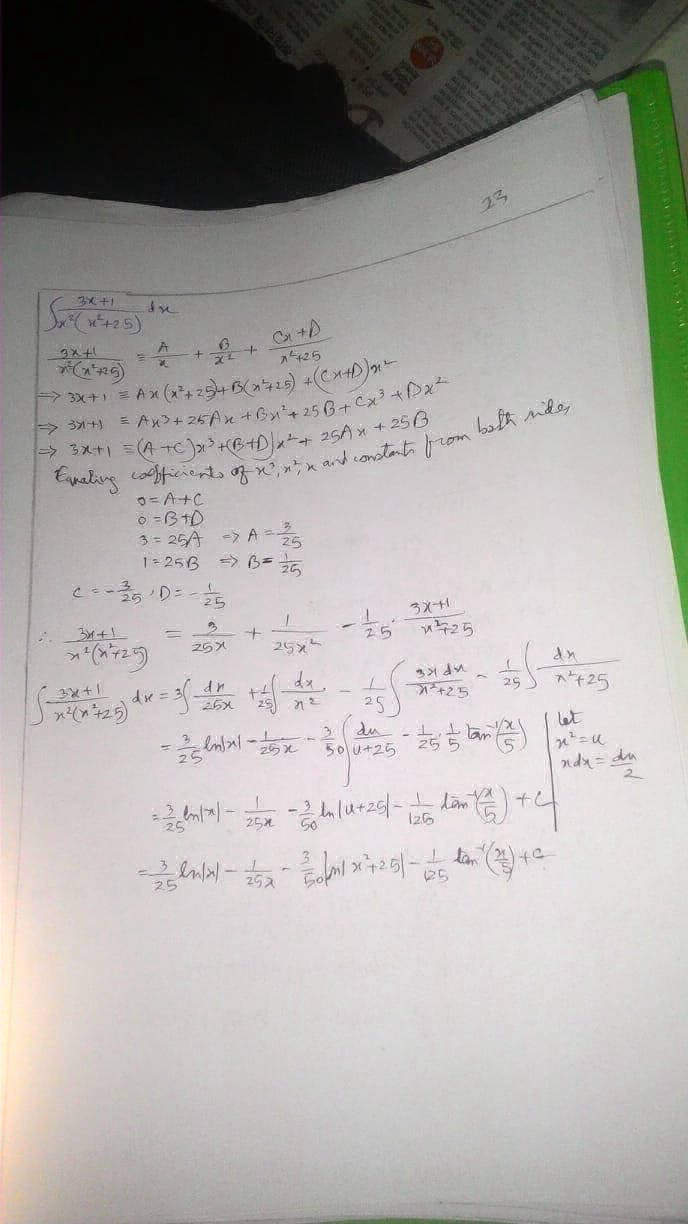 23
∫ 3x+1 / x²(x²+25) dx
3x+1 / x²(x²+25) ≡ A/x + B/x² + Cx+D / x²+25
⇒ 3x+1 ≡ Ax(x²+25)+B(x²+25)+(Cx+D)x²
⇒ 3x+1 ≡ Ax³+25Ax+Bx²+25B+Cx³+Dx²
⇒ 3x+1 ≡ (A+C)x³+(B+D)x²+25Ax+25B
Equating coefficients of x³, x², x and constants from both sides,
0 = A+C
0 = B+D
3 = 25A ⇒ A = 3/25
1 = 25B ⇒ B = 1/25
C = -3/25, D = -1/25
∴ 3x+1 / x²(x²+25) = 3/25x + 1/25x² - 1/25 · 3x+1 / x²+25
∫ 3x+1 / x²(x²+25) dx = 3∫ dx/25x + 1/25 ∫ dx/x² - 1/25 ∫ 3x dx / x²+25 - 1/25 ∫ dx / x²+25
= 3/25 ln|x| - 1/25x - 3/50 ∫ du / u+25 - 1/25 · 1/5 tan⁻¹(x/5)
let
x² = u
xdx = du/2
= 3/25 ln|x| - 1/25x - 3/50 ln|u+25| - 1/125 tan⁻¹(x/5) + C
= 3/25 ln|x| - 1/25x - 3/50 ln|x²+25| - 1/125 tan⁻¹(x/5) + C